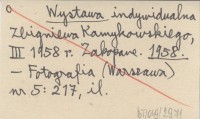 Wystawa indywidualna
Zbigniewa Kamykowskiego,
III 1958 r. Zakopane. 1958.
– Fotografia (Warszawa)
nr 5: 217, il.